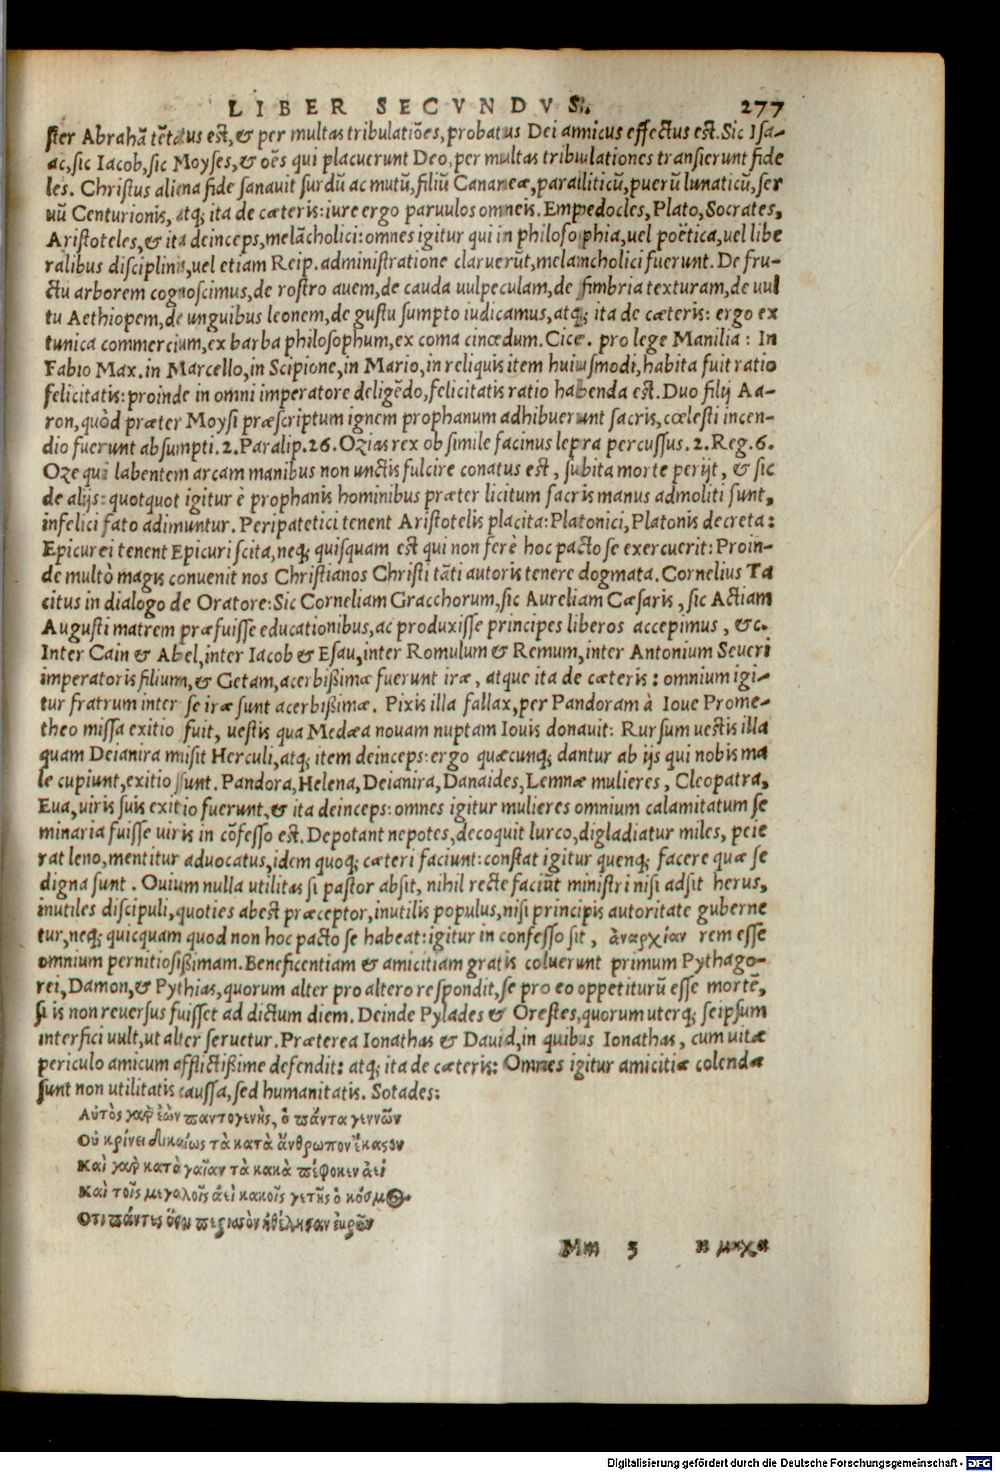 LIBER SECVNDVS. 277
ster Abrahã tẽtatus est, & per multas tribulatiões, probatus Dei amicus effectus est. Sic Isa-
ac, sic Iacob, sic Moyses, & oẽs qui placuerunt Deo, per multas tribulationes transierunt fide
les. Christus aliena fide sanauit surdũ ac mutũ, filiũ Cananeæ, paraliticũ, puerũ lunaticũ, ser
uũ Centurionis, atq; ita de cæteris: iure ergo paruulos omneis. Empedocles, Plato, Socrates,
Aristoteles, & ita deinceps, melãcholici: omnes igitur qui in philosophia, uel poëtica, uel libe
ralibus disciplinis, uel etiam Reip. administratione claruerũt, melancholici fuerunt. De fru-
ctu arborem cognoscimus, de rostro auem, de cauda uulpeculam, de fimbria texturam, de uul
tu Aethiopem, de unguibus leonem, de gustu sumpto iudicamus, atq; ita de cæteris: ergo ex
tunica commercium, ex barba philosophum, ex coma cinœdum. Cice. pro lege Manilia: In
Fabio Max. in Marcello, in Scipione, in Mario, in reliquis item huiusmodi, habita fuit ratio
felicitatis: proinde in omni imperatore deligẽdo, felicitatis ratio habenda est. Duo filij Aa-
ron, quòd præter Moysi præscriptum ignem prophanum adhibuerunt sacris, cœlesti incen-
dio fuerunt absumpti. 2. Paralip. 26. Ozias rex ob simile facinus lepra percussus. 2. Reg. 6.
Oze qui labentem arcam manibus non unctis fulcire conatus est, subita morte perijt, & sic
de alijs: quotquot igitur è prophanis hominibus præter licitum sacris manus admoliti sunt,
infelici fato adimuntur. Peripatetici tenent Aristotelis placita: Platonici, Platonis decreta:
Epicurei tenent Epicuri scita, neq; quisquam est qui non ferè hoc pacto se exercuerit: Proin-
de multò magis conuenit nos Christianos Christi tãti autoris tenere dogmata. Cornelius Ta
citus in dialogo de Oratore: Sic Corneliam Gracchorum, sic Aureliam Cæsaris, sic Actiam
Augusti matrem præfuisse educationibus, ac produxisse principes liberos accepimus, &c.
Inter Cain & Abel, inter Iacob & Esau, inter Romulum & Remum, inter Antonium Seueri
imperatoris filium, & Getam, acerbißimæ fuerunt iræ, atque ita de cæteris: omnium igi-
tur fratrum inter se iræ sunt acerbißimæ. Pixis illa fallax, per Pandoram à Ioue Prome-
theo missa exitio fuit, uestis qua Medæa nouam nuptam Iouis donauit: Rursum uestis illa
quam Deianira misit Herculi, atq; item deinceps: ergo quæcunq; dantur ab ijs qui nobis ma
le cupiunt, exitio sunt. Pandora, Helena, Deianira, Danaides, Lemnæ mulieres, Cleopatra,
Eua, uiris suis exitio fuerunt, & ita deinceps: omnes igitur mulieres omnium calamitatum se
minaria fuisse uiris in cõfesso est. Depotant nepotes, decoquit lurco, digladiatur miles, peie
rat leno, mentitur aduocatus, idem quoq; cæteri faciunt: constat igitur quenq; facere quæ se
digna sunt. Ouium nulla utilitas si pastor absit, nihil recte faciũt ministri nisi adsit herus,
inutiles discipuli, quoties abest præceptor, inutilis populus, nisi principis autoritate guberne
tur, neq; quicquam quod non hoc pacto se habeat: igitur in confesso sit, ἀναρχίαν rem esse
omnium pernitiosißimam. Beneficentiam & amicitiam gratis coluerunt primum Pythago-
rei, Damon, & Pythias, quorum alter pro altero respondit, se pro eo oppetiturũ esse mortẽ,
si is non reuersus fuisset ad dictum diem. Deinde Pylades & Orestes, quorum uterq; seipsum
interfici uult, ut alter seruetur. Præterea Ionathas & Dauid, in quibus Ionathas, cum uitæ
periculo amicum afflictißime defendit: atq; ita de cæteris: Omnes igitur amicitiæ colendæ
sunt non utilitatis caussa, sed humanitatis. Sotades:
Αὐτὸς γὰρ ἐὼν παντογενὴς, ὁ πάντα γεννῶν
Οὐ κρίνει δικαίως τὰ κατὰ ἄνθρωπον ἕκαστον
Καὶ γὰρ κατὰ γαῖαν τὰ κακὰ πέφυκεν ἀεὶ
Καὶ τοῖς μεγαλοῖς ἀεὶ κακοῖς γέτηε ὁ κόσμος
Ὅτι πάντες ὅσοι περισσὸν ἠθέλησαν εὑρεῖν
Mm 3 ἢ μηχα
Digitalisierung gefördert durch die Deutsche Forschungsgemeinschaft - DFG